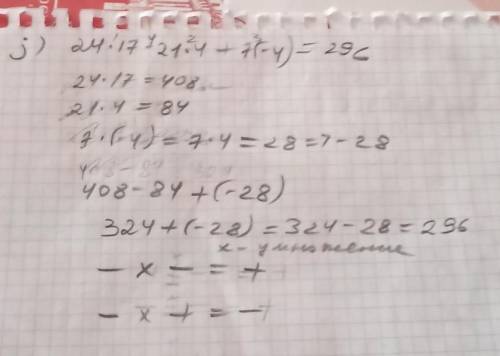 j) 24·17-21·4+7·(-4)=296
24·17=408
21·4=84
7·(-4)=7·4=28=>-28
408-84+(-28)
324+(-28)=324-28=296
x-умножение
- x - = +
- x + = -